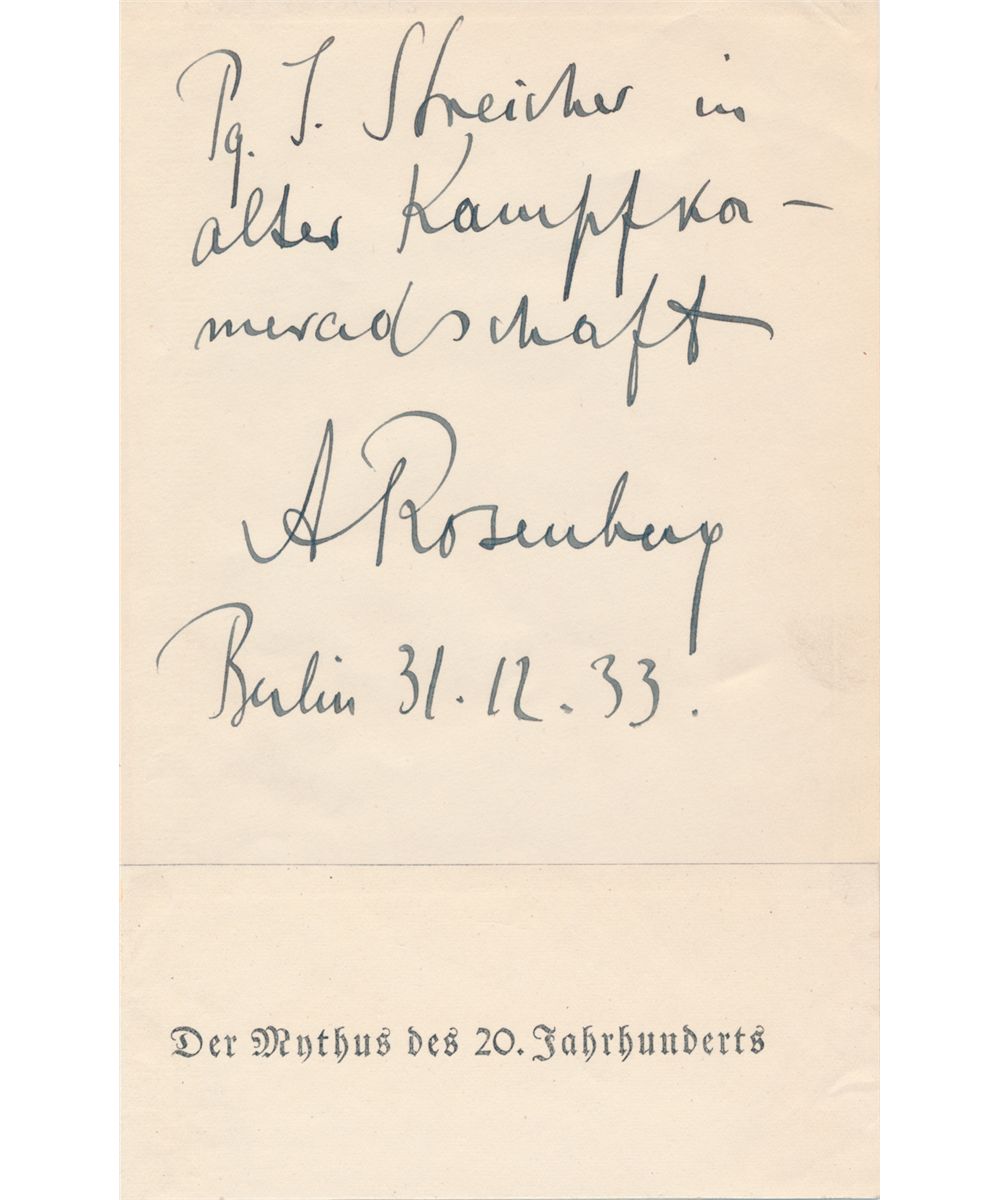 Pg. J. Streicher in
alter Kampfka-
meradschaft
A Rosenberg
Berlin 31.12.33.
Der Mythus des 20. Jahrhunderts